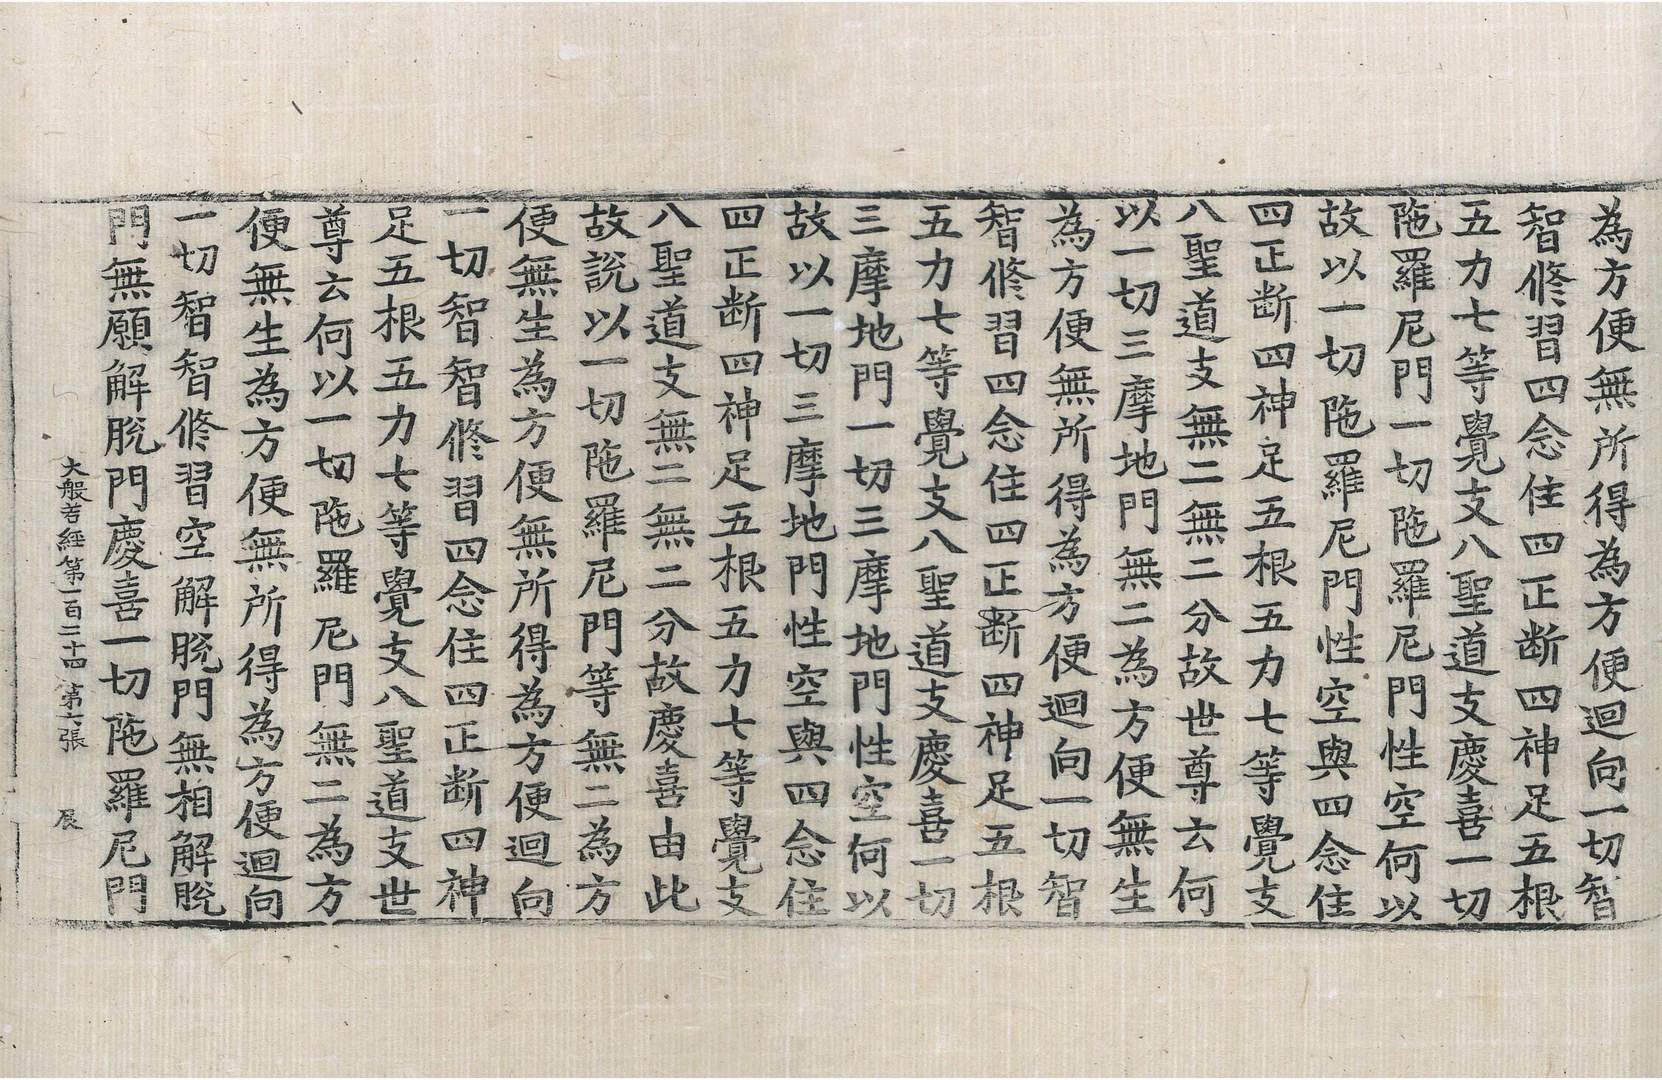 為方便無所得為方便迴向一切智
智修習四念住四正断四神足五根
五力七等覺支八聖道支慶喜一切
陁羅尼門一切陁羅尼門性空何以
故以一切陁羅尼門性空與四念住
四正断四神足五根五力七等覺支
八聖道支無二無二分故世尊云何
以一切三摩地門無二為方便無生
為方便無所得為方便迴向一切智
智修習四念住四正断四神足五根
五力七等覺支八聖道支慶喜一切
三摩地門一切三摩地門性空何以
故以一切三摩地門性空與四念住
四正断四神足五根五力七等覺支
八聖道支無二無二分故慶喜由此
故說以一切陁羅尼門等無二為方
便無生為方便無所得為方便迴向
一切智智修習四念住四正断四神
足五根五力七等覺支八聖道支世
尊云何以一切陁羅尼門無二為方
便無生為方便無所得為方便迴向
一切智智修習空解脫門無相解脫
門無願解脫門慶喜一切陁羅尼門
大般若經第一百二十四 第六張 辰